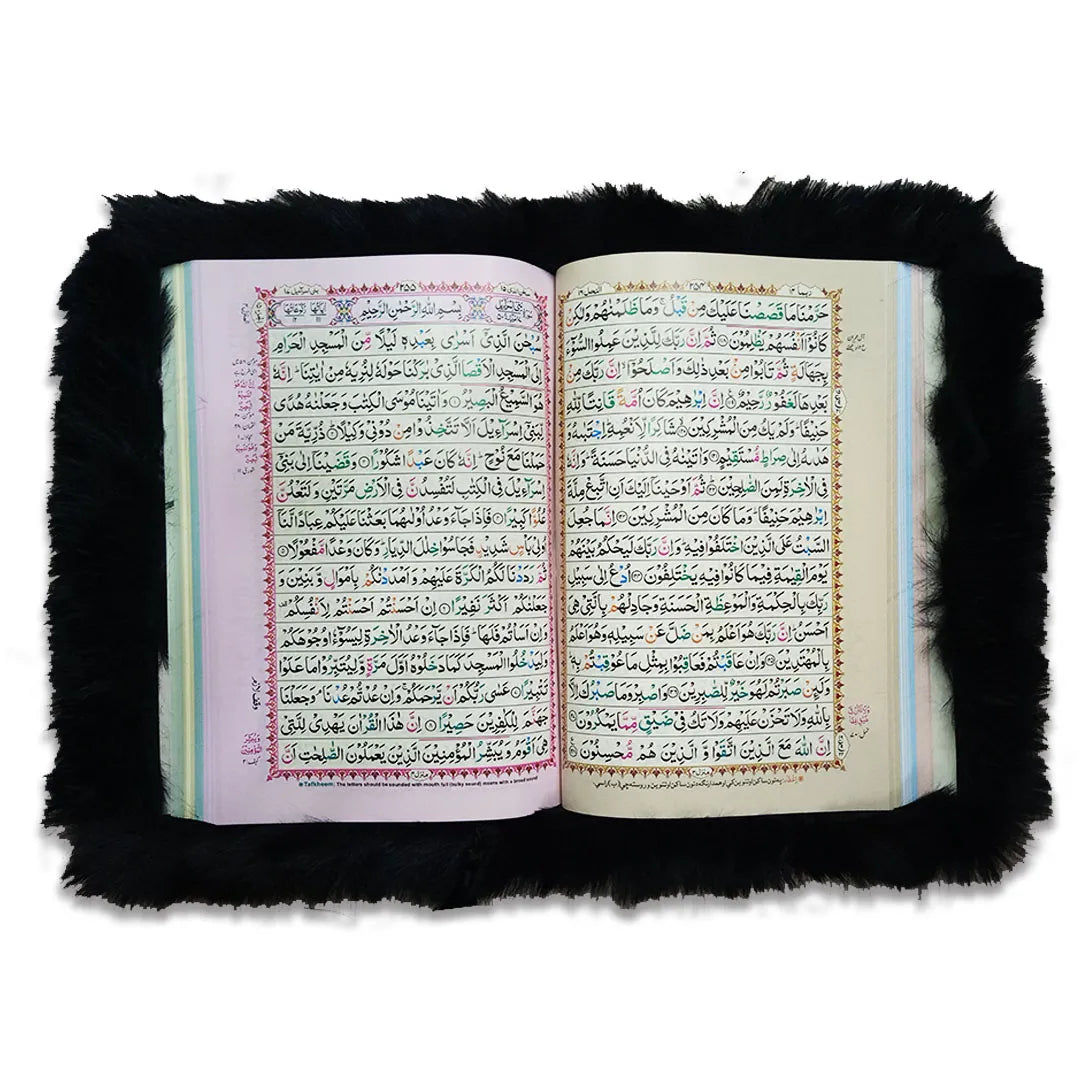 ربما ۱۴
۲۵۴
النحل ۱۶
حَرَّمْنَا مَا قَصَصْنَا عَلَيْكَ مِنْ قَبْلُ ۚ وَمَا ظَلَمْنٰهُمْ وَلٰكِنْ
كَانُوْۤا اَنْفُسَهُمْ يَظْلِمُوْنَ ﴿۱۱۸﴾ ثُمَّ اِنَّ رَبَّكَ لِلَّذِيْنَ عَمِلُوا السُّوْٓءَ
بِجَهَالَةٍ ثُمَّ تَابُوْا مِنْۢ بَعْدِ ذٰلِكَ وَاَصْلَحُوْۤا ۙ اِنَّ رَبَّكَ مِنْۢ
بَعْدِهَا لَغَفُوْرٌ رَّحِيْمٌ ﴿۱۱۹﴾ اِنَّ اِبْرٰهِيْمَ كَانَ اُمَّةً قَانِتًا لِّلّٰهِ
حَنِيْفًا ؕ وَلَمْ يَكُ مِنَ الْمُشْرِكِيْنَ ﴿۱۲۰﴾ شَاكِرًا لِّاَنْعُمِهٖ ؕ اِجْتَبٰىهُ وَ
هَدٰىهُ اِلٰى صِرَاطٍ مُّسْتَقِيْمٍ ﴿۱۲۱﴾ وَاٰتَيْنٰهُ فِى الدُّنْيَا حَسَنَةً ؕ وَاِنَّهٗ
فِى الْاٰخِرَةِ لَمِنَ الصّٰلِحِيْنَ ﴿۱۲۲﴾ ثُمَّ اَوْحَيْنَاۤ اِلَيْكَ اَنِ اتَّبِعْ مِلَّةَ
اِبْرٰهِيْمَ حَنِيْفًا ؕ وَمَا كَانَ مِنَ الْمُشْرِكِيْنَ ﴿۱۲۳﴾ اِنَّمَا جُعِلَ
السَّبْتُ عَلَى الَّذِيْنَ اخْتَلَفُوْا فِيْهِ ؕ وَاِنَّ رَبَّكَ لَيَحْكُمُ بَيْنَهُمْ
يَوْمَ الْقِيٰمَةِ فِيْمَا كَانُوْا فِيْهِ يَخْتَلِفُوْنَ ﴿۱۲۴﴾ اُدْعُ اِلٰى سَبِيْلِ
رَبِّكَ بِالْحِكْمَةِ وَالْمَوْعِظَةِ الْحَسَنَةِ وَجَادِلْهُمْ بِالَّتِىْ هِىَ
اَحْسَنُ ؕ اِنَّ رَبَّكَ هُوَ اَعْلَمُ بِمَنْ ضَلَّ عَنْ سَبِيْلِهٖ وَهُوَ اَعْلَمُ
بِالْمُهْتَدِيْنَ ﴿۱۲۵﴾ وَاِنْ عَاقَبْتُمْ فَعَاقِبُوْا بِمِثْلِ مَا عُوْقِبْتُمْ بِهٖ ؕ
وَلَىِٕنْ صَبَرْتُمْ لَهُوَ خَيْرٌ لِّلصّٰبِرِيْنَ ﴿۱۲۶﴾ وَاصْبِرْ وَمَا صَبْرُكَ اِلَّا
بِاللّٰهِ وَلَا تَحْزَنْ عَلَيْهِمْ وَلَا تَكُ فِىْ ضَيْقٍ مِّمَّا يَمْكُرُوْنَ ﴿۱۲۷﴾
اِنَّ اللّٰهَ مَعَ الَّذِيْنَ اتَّقَوْا وَّالَّذِيْنَ هُمْ مُّحْسِنُوْنَ ﴿۱۲۸﴾
منزل ۳
۲۵۵
بِسْمِ اللّٰهِ الرَّحْمٰنِ الرَّحِيْمِ
سُبْحٰنَ الَّذِىْۤ اَسْرٰى بِعَبْدِهٖ لَيْلًا مِّنَ الْمَسْجِدِ الْحَرَامِ
اِلَى الْمَسْجِدِ الْاَقْصَا الَّذِىْ بٰرَكْنَا حَوْلَهٗ لِنُرِيَهٗ مِنْ اٰيٰتِنَا ؕ اِنَّهٗ
هُوَ السَّمِيْعُ الْبَصِيْرُ ﴿۱﴾ وَاٰتَيْنَا مُوْسَى الْكِتٰبَ وَجَعَلْنٰهُ هُدًى
لِّبَنِىْۤ اِسْرَآءِيْلَ اَلَّا تَتَّخِذُوْا مِنْ دُوْنِىْ وَكِيْلًا ﴿۲﴾ ذُرِّيَّةَ مَنْ
حَمَلْنَا مَعَ نُوْحٍ ؕ اِنَّهٗ كَانَ عَبْدًا شَكُوْرًا ﴿۳﴾ وَقَضَيْنَاۤ اِلٰى بَنِىْۤ
اِسْرَآءِيْلَ فِى الْكِتٰبِ لَتُفْسِدُنَّ فِى الْاَرْضِ مَرَّتَيْنِ وَلَتَعْلُنَّ
عُلُوًّا كَبِيْرًا ﴿۴﴾ فَاِذَا جَآءَ وَعْدُ اُوْلٰىهُمَا بَعَثْنَا عَلَيْكُمْ عِبَادًا لَّنَاۤ
اُولِىْ بَاْسٍ شَدِيْدٍ فَجَاسُوْا خِلٰلَ الدِّيَارِ ؕ وَكَانَ وَعْدًا مَّفْعُوْلًا ﴿۵﴾
ثُمَّ رَدَدْنَا لَكُمُ الْكَرَّةَ عَلَيْهِمْ وَاَمْدَدْنٰكُمْ بِاَمْوَالٍ وَّبَنِيْنَ وَ
جَعَلْنٰكُمْ اَكْثَرَ نَفِيْرًا ﴿۶﴾ اِنْ اَحْسَنْتُمْ اَحْسَنْتُمْ لِاَنْفُسِكُمْ ۟
وَاِنْ اَسَاْتُمْ فَلَهَا ؕ فَاِذَا جَآءَ وَعْدُ الْاٰخِرَةِ لِيَسُوْٓءٗا وُجُوْهَكُمْ
وَلِيَدْخُلُوا الْمَسْجِدَ كَمَا دَخَلُوْهُ اَوَّلَ مَرَّةٍ وَّلِيُتَبِّرُوْا مَا عَلَوْا
تَتْبِيْرًا ﴿۷﴾ عَسٰى رَبُّكُمْ اَنْ يَّرْحَمَكُمْ ۚ وَاِنْ عُدْتُّمْ عُدْنَا ۘ وَجَعَلْنَا
جَهَنَّمَ لِلْكٰفِرِيْنَ حَصِيْرًا ﴿۸﴾ اِنَّ هٰذَا الْقُرْاٰنَ يَهْدِىْ لِلَّتِىْ
هِىَ اَقْوَمُ وَيُبَشِّرُ الْمُؤْمِنِيْنَ الَّذِيْنَ يَعْمَلُوْنَ الصّٰلِحٰتِ اَنَّ
منزل ۴
Tafkheem: The letters should be sounded with mouth full (bulky sound) means with a broad sound